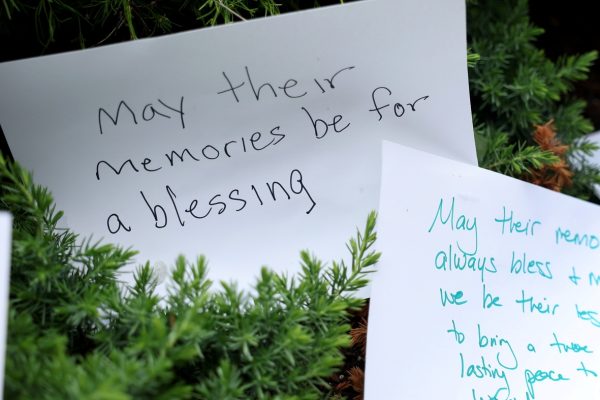 May their
memories be for
a blessing
May their memo
always bless & m
we be their
to bring a
lasting peace to